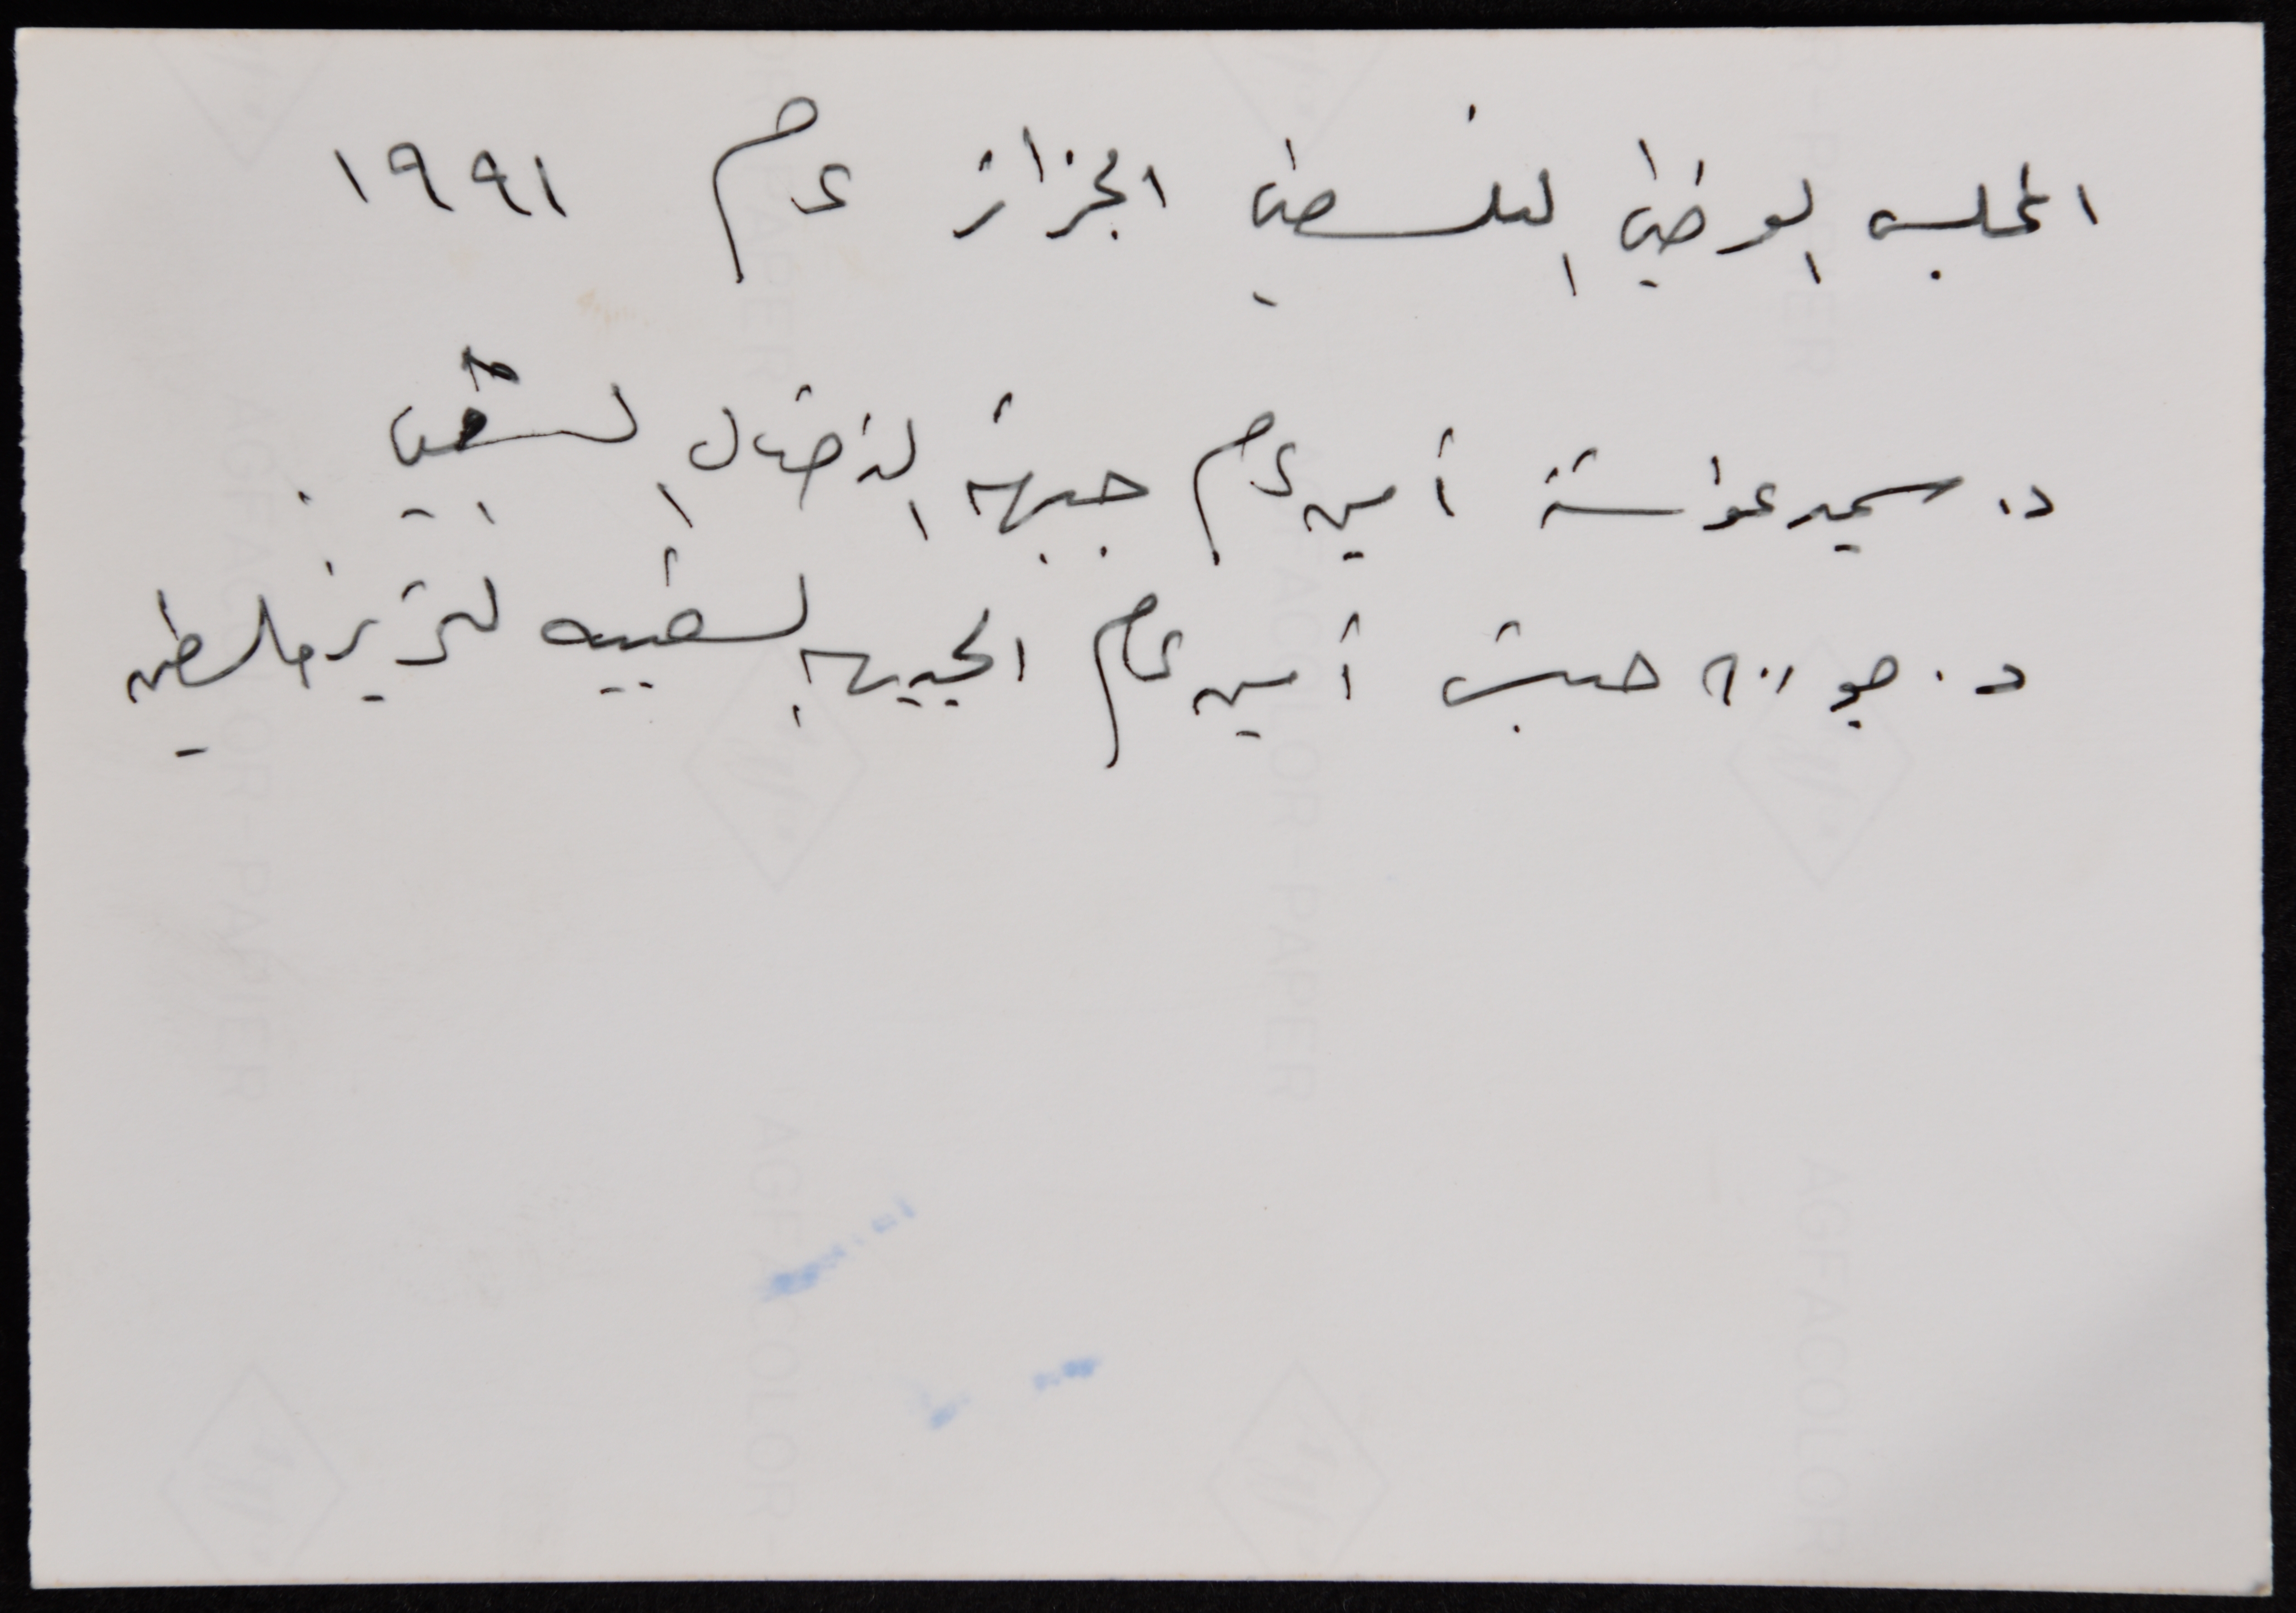 المجلس الوطني الفلسطيني الجزائر عام ١٩٩١
د. سمير غوشة أمين عام جبهة النضال الشعبي .
د. جورج حبش أمين عام الجبهة الشعبيه لتحرير فلسطين
AGFACOLOR-PAPIER